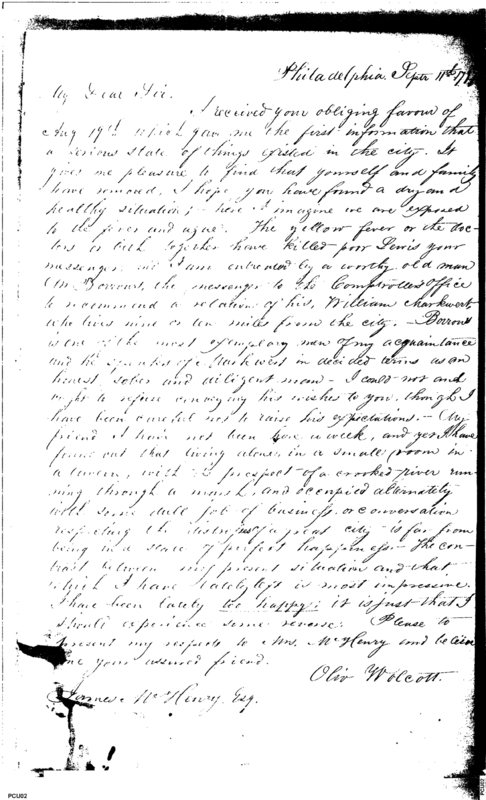 Philadelphia. Septr 11th 179
My Dear Sir.
I received your obliging favour of
Aug 19th which gave me the first information that
a serious state of things existed in the city. It
gives me pleasure to find that yourself and family
have removed. I hope you have found a dry and
healthy situation; here I imagine we are exposed
to the fever and ague. The yellow fever or the doc-
tors or both together have killed poor Lewis your
messenger and I am entreated by a worthy old man
Mr. Borrows, the messenger to the Comptrollers office
to recommend a relation of his, William Markwert
who lives nine or ten miles from the city. Borrows
is one of the most exemplary men of my acquaintance
and he speaks of Markwest in decided terms as an
honest, sober and diligent man - I could not and
ought to refuse conveying his wishes to you, though I
have been careful not to raise his expectations. - My
friend I have not been here a week, and yet I have
found out that living alone, in a small room in
a tavern, with prospect of a crooked river run-
ning through a marsh, and occupied alternately
with some dull job of business, or conversation
respecting the distress of a great city is far from
being in a state of perfect happiness. The con-
trast between my present situation and that
which I have lately left is most impressive.
I have been lately too happy; it is just that I
should experience some reverse. Please to
present my respects to Mrs. McHenry and believe
me your assured friend.
Oliv Wolcott.
James McHenry Esq.
PCU02
PCU02